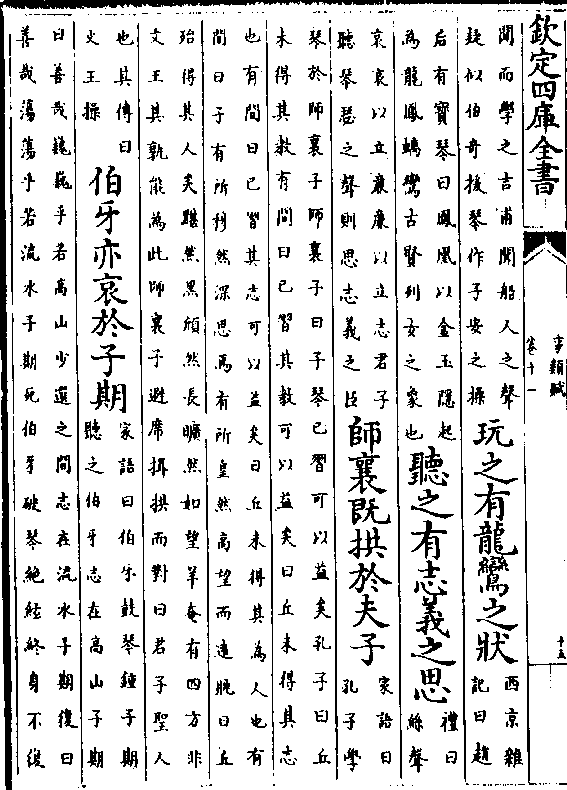 欽定四庫全書
事類賦
卷十一
十五
聞而學之吉甫聞船人之聲
疑似伯奇援琴作子安之操
玩之有龍鸞之狀
西京雜
記曰趙
后有寶琴曰鳳凰以金玉隱起
為龍鳳螭鸞古賢列女之象也
聽之有志義之思
禮曰
絲聲
哀哀以立廉廉以立志君子
聽琴瑟之聲則思志義之臣
師襄既拱於夫子
家語曰
孔子學
琴於師襄子師襄子曰子琴已習可以益矣孔子曰丘
未得其數有間曰已習其數可以益矣曰丘未得其志
也有間曰已習其志可以益矣曰丘未得其為人也有
間曰子有所穆然深思焉有所皇然高望而遠眺曰丘
殆得其人矣黮然黑頎然長曠然如望羊奄有四方非
文王其孰能為此師襄子避席揖拱而對曰君子聖人
也其傳曰
文王操
伯牙亦哀於子期
家語曰伯牙鼓琴鍾子期
聽之伯牙志在高山子期
曰善哉巍巍乎若高山少選之間志在流水子期復曰
善哉蕩蕩乎若流水子期死伯牙破琴絕絃終身不復